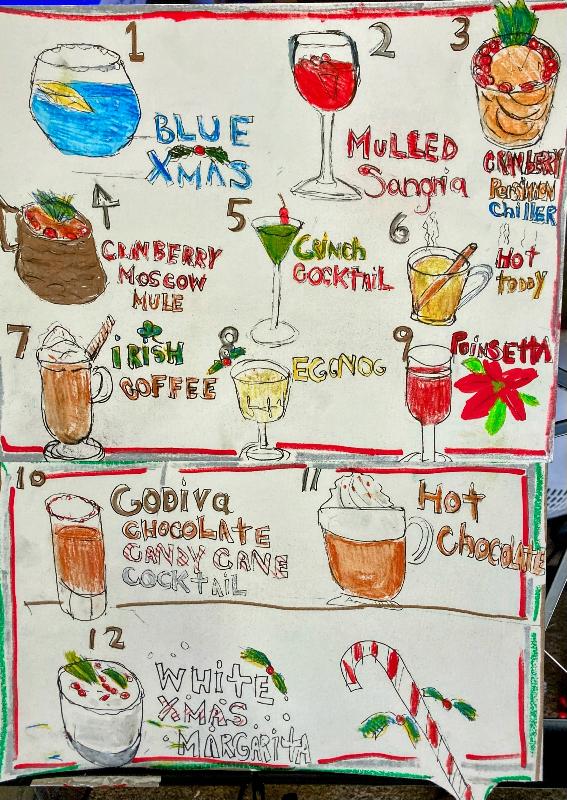 1
BLUE
XMAS
2
MULLED
Sangria
3
CRANBERRY
PERSIMMON
CHiLLER
4
CRANBERRY
MOSCOW
MULE
5
GRINCH
COCKTAIL
6
HOT
TODDY
7
iRiSH
COFFEE
8
EGGNOG
9
POINSETTA
10
GODiva
CHOCOLATE
CANDY CANE
COCKTAiL
11
HOt
CHOCOLATE
12
WHitE
XMAS
MARGARITA